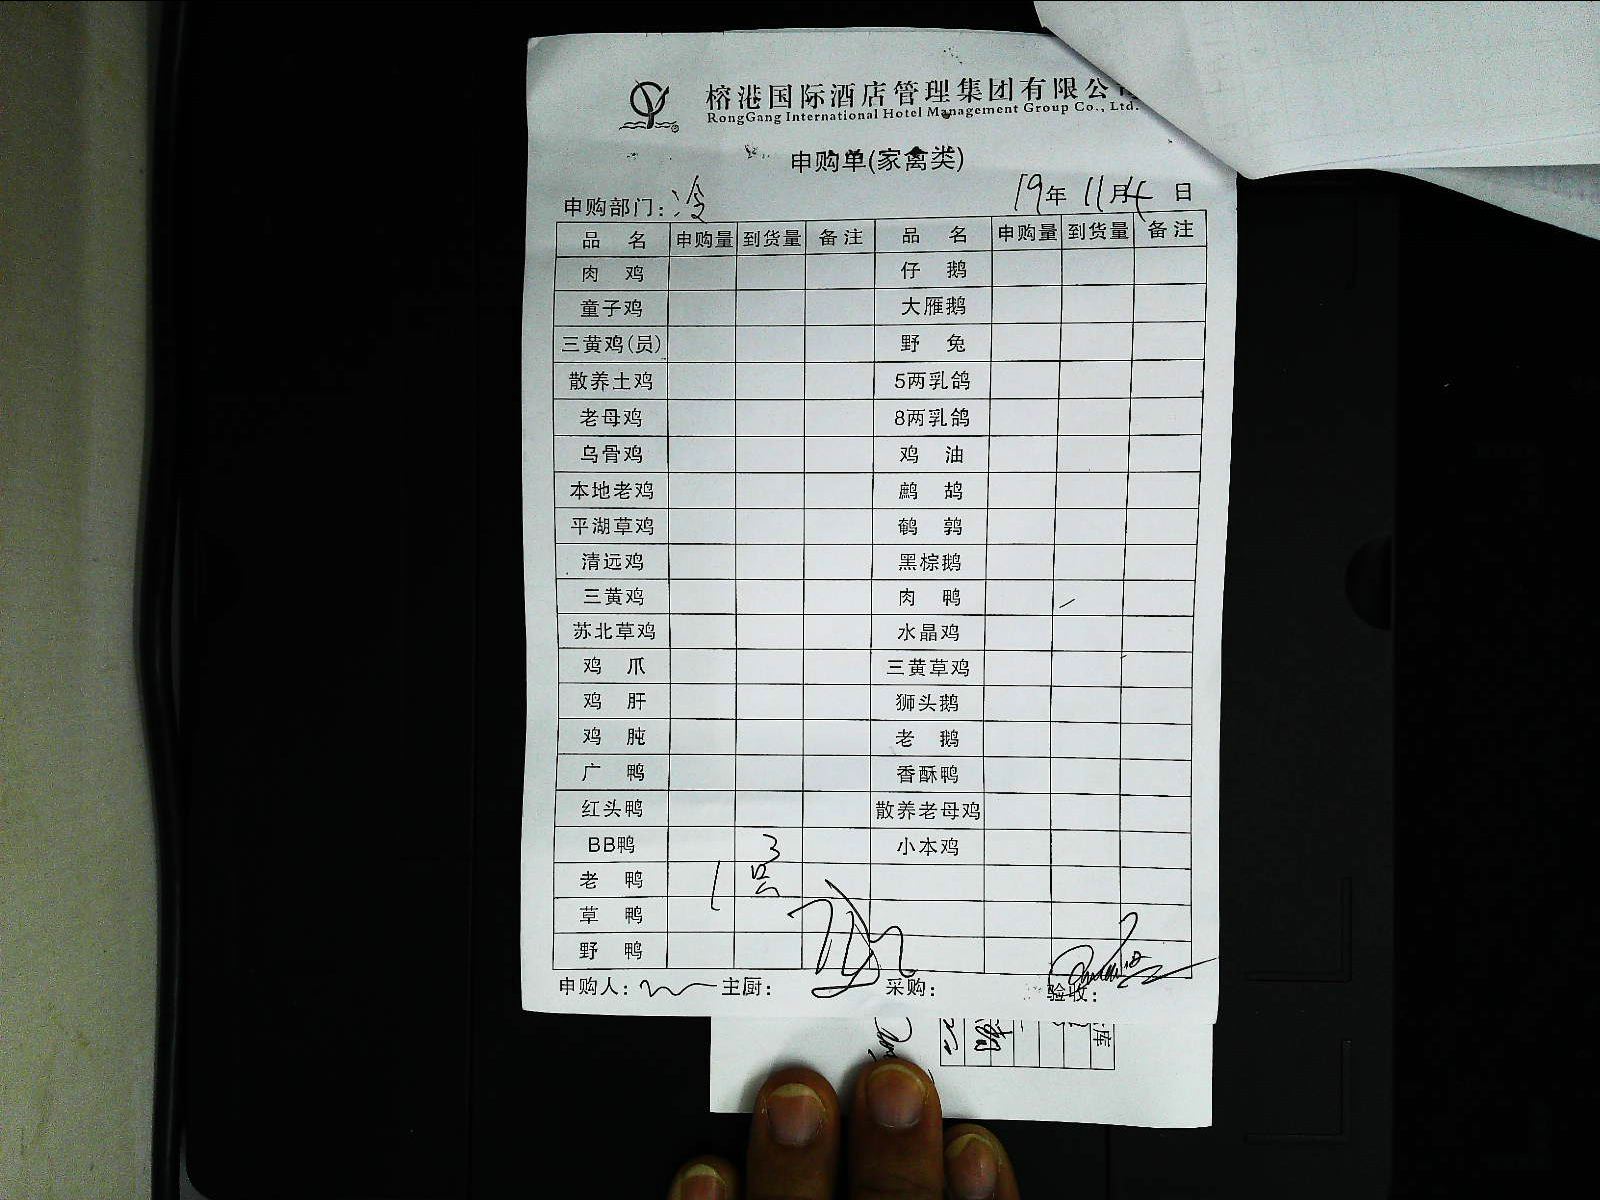 榕港国际酒店管理集团有限公司
RongGang International Hotel Management Group Co., Ltd.
申购单(家禽类)
申购部门：冷 19年11月4日
品名 申购量 到货量 备注 品名 申购量 到货量 备注
肉鸡 仔鹅
童子鸡 大雁鹅
三黄鸡(员) 野兔
散养土鸡 5两乳鸽
老母鸡 8两乳鸽
乌骨鸡 鸡油
本地老鸡 鹧鸪
平湖草鸡 鹌鹑
清远鸡 黑棕鹅
三黄鸡 肉鸭
苏北草鸡 水晶鸡
鸡爪 三黄草鸡
鸡肝 狮头鹅
鸡肫 老鹅
广鸭 香酥鸭
红头鸭 散养老母鸡
BB鸭 3 小本鸡
老鸭 1
草鸭
野鸭
申购人： 主厨： 采购： 验收：
库